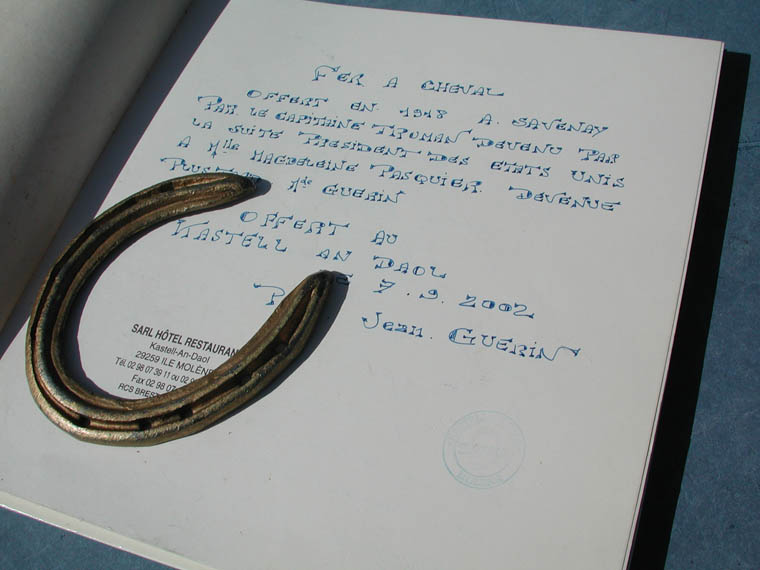 FER A CHEVAL
OFFERT EN 1918 A SAVENAY
PAR LE CAPITAINE TRUMAN DEVENU PAR
LA SUITE PRESIDENT DES ETATS UNIS
A Mlle MAGDELEINE PASQUIER DEVENUE
PLUS Mde GUERIN
OFFERT AU
KASTELL AN DAOL
7.9.2002
Jean GUERIN
SARL HÔTEL RESTAURAN
Kastell-An-Daol
29259 ILE MOLÈN
Tél. 02 98 07 39 11 ou 02 9
Fax 02 98 07
RCS BREST